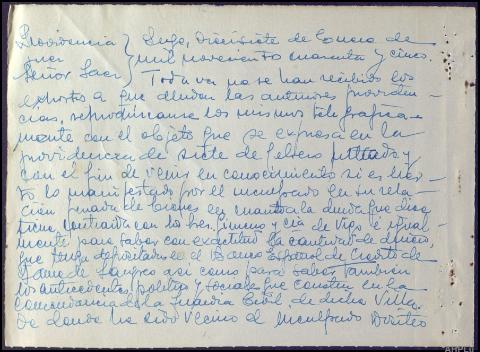 Providencia } Lugo, Diecisiete de Enero de
Juez } mil novecientos cuarenta y cinco.
Señor Saez } Toda vez no se han recibido los
exhortos a que aluden las anteriores providen-
cias, reprodúzcanse los mismos telegráfica-
mente con el objeto que se expresa en la
providencia de siete de febrero y
con el fin de venir en conocimiento si es cier-
to lo manifestado por el inculpado en su rela-
ción jurada de bienes en cuanto a la deuda que dice
tiene contraida con los Sres. y Cia de Vigo é igual-
mente para saber con exactitud la cantidad de dinero
que tenga depositados en el Banco Español de Crédito de
Sama de Langreo asi como para saber tambien
los antecedentes politicos y sociales que consten en la
Comandancia de la Guardia Civil de dicha Villa
de donde ha sido vecino el inculpado Dositeo
AHPLu